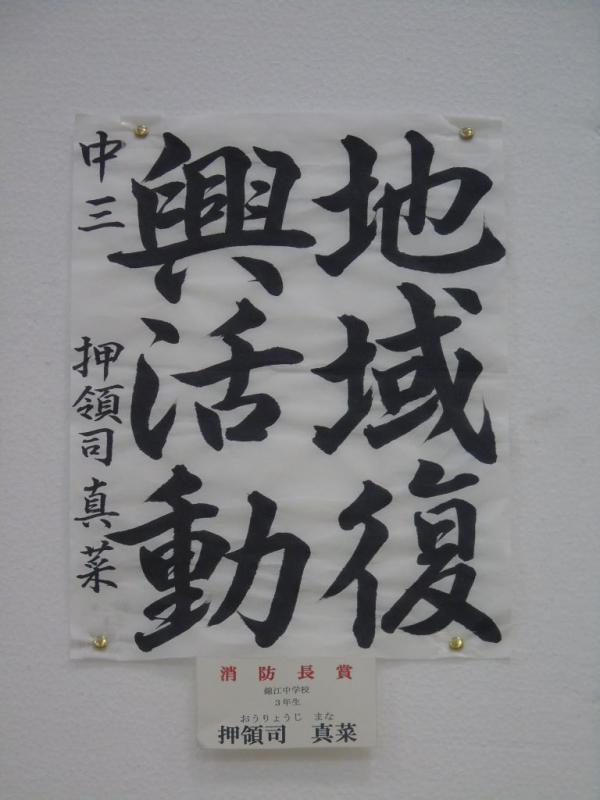 地域復
興活動
中三 押領司真菜
消防長賞
錦江中学校
3年生
おうりょうじ まな
押領司 真菜